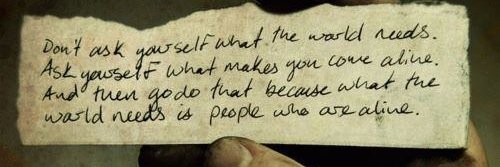 Don't ask yourself what the world needs.
Ask yourself what makes you come alive.
And then go do that because what the
world needs is people who are alive.